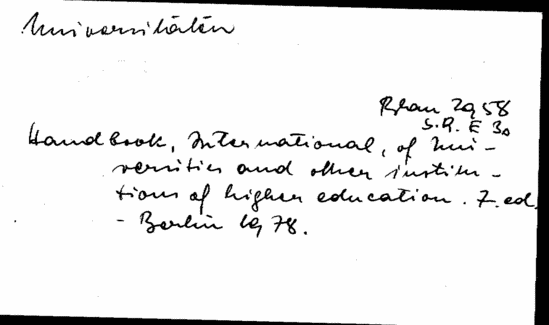 Universitäten
Rhan 2958
S.R. E 30
Handbook, International, of Uni-
versities and other institu-
tions of higher education. 7. ed.
- Berlin 1978.